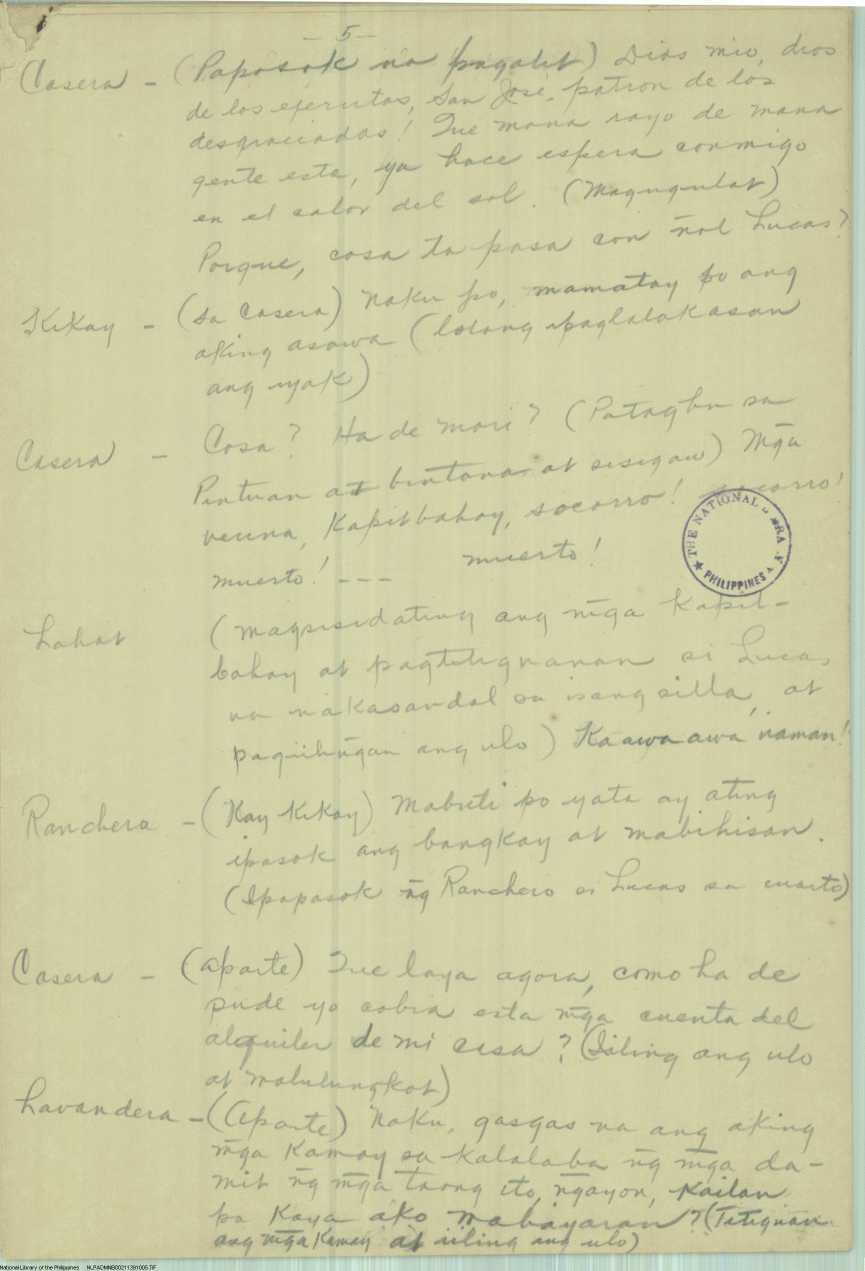 - 5 -
Casera - (Papasok na pagalit) Dios mio, dios
de los ejercitos, San Jose, patron de los
desgraciados! Que mana rayo de mana
gente este, ya hace espera conmigo
en el calor del sol. (Magugulat)
Porque, cosa ta pasa con ñol Lucas?
Kikay - (Sa Casera) Naku po, mamatay po ang
aking asawa (lalong ipaglalakasan
ang iyak)
Casera - Cosa? Ha de mori? (Patagbu sa
Pintuan at bintana at sisigaw) Mḡa
vecina, Kapitbahay, socorro! socorro!
muerto! --- muerto!
Lahat (magsisidating ang mḡa Kapit-
bahay at pagtitignanan si Lucas
na nakasandal sa isang silla, at
pagiilingan ang ulo) Kaawaawa naman!
Ranchera - (Kay Kikay) Mabuti po yata ay ating
ipasok ang bangkay at mabihisan.
(Ipapasok n̄g Ranchero si Lucas sa cuarto)
Casera - (aparte) Que laya agora, como ha de
pude yo cobra esta mḡa cuenta del
alquiler de mi casa? (Iiling ang ulo
at malulungkot)
Lavandera - (aparte) Naku, gasgas na ang aking
mḡa Kamay sa kalalaba n̄g mḡa da-
mit n̄g mḡa taong ito, n̄gayon, Kailan
pa Kaya ako mabayaran? (Titignan
ang mḡa Kamay at iiling ang ulo)
THE NATIONAL LIBRARY
PHILIPPINES
National Library of the Philippines NLPADMNB00211391005.TIF